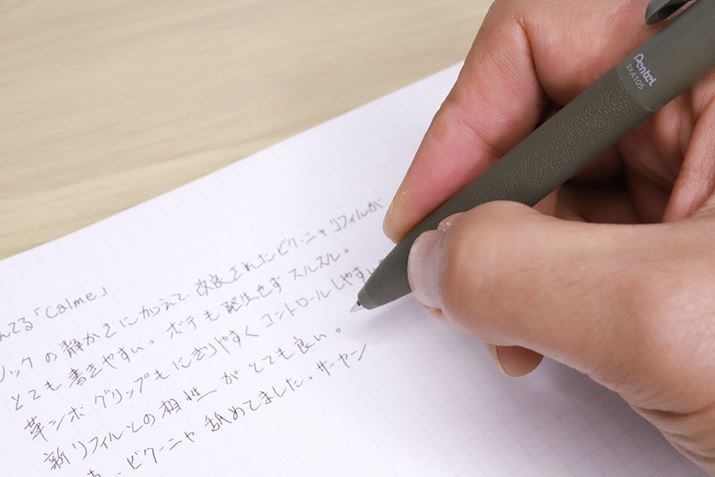 んてる「Calme」
ノックの静かさに加えて、改良されたビクーニャリフィルが
とても書きやすい。ボテも発生せずスルスル。
革シボグリップもにぎりやすくコントロールしやすい
新リフィルとの相性がとても良い。
ビクーニャ舐めてました。サーセン
Pentel
BXA105